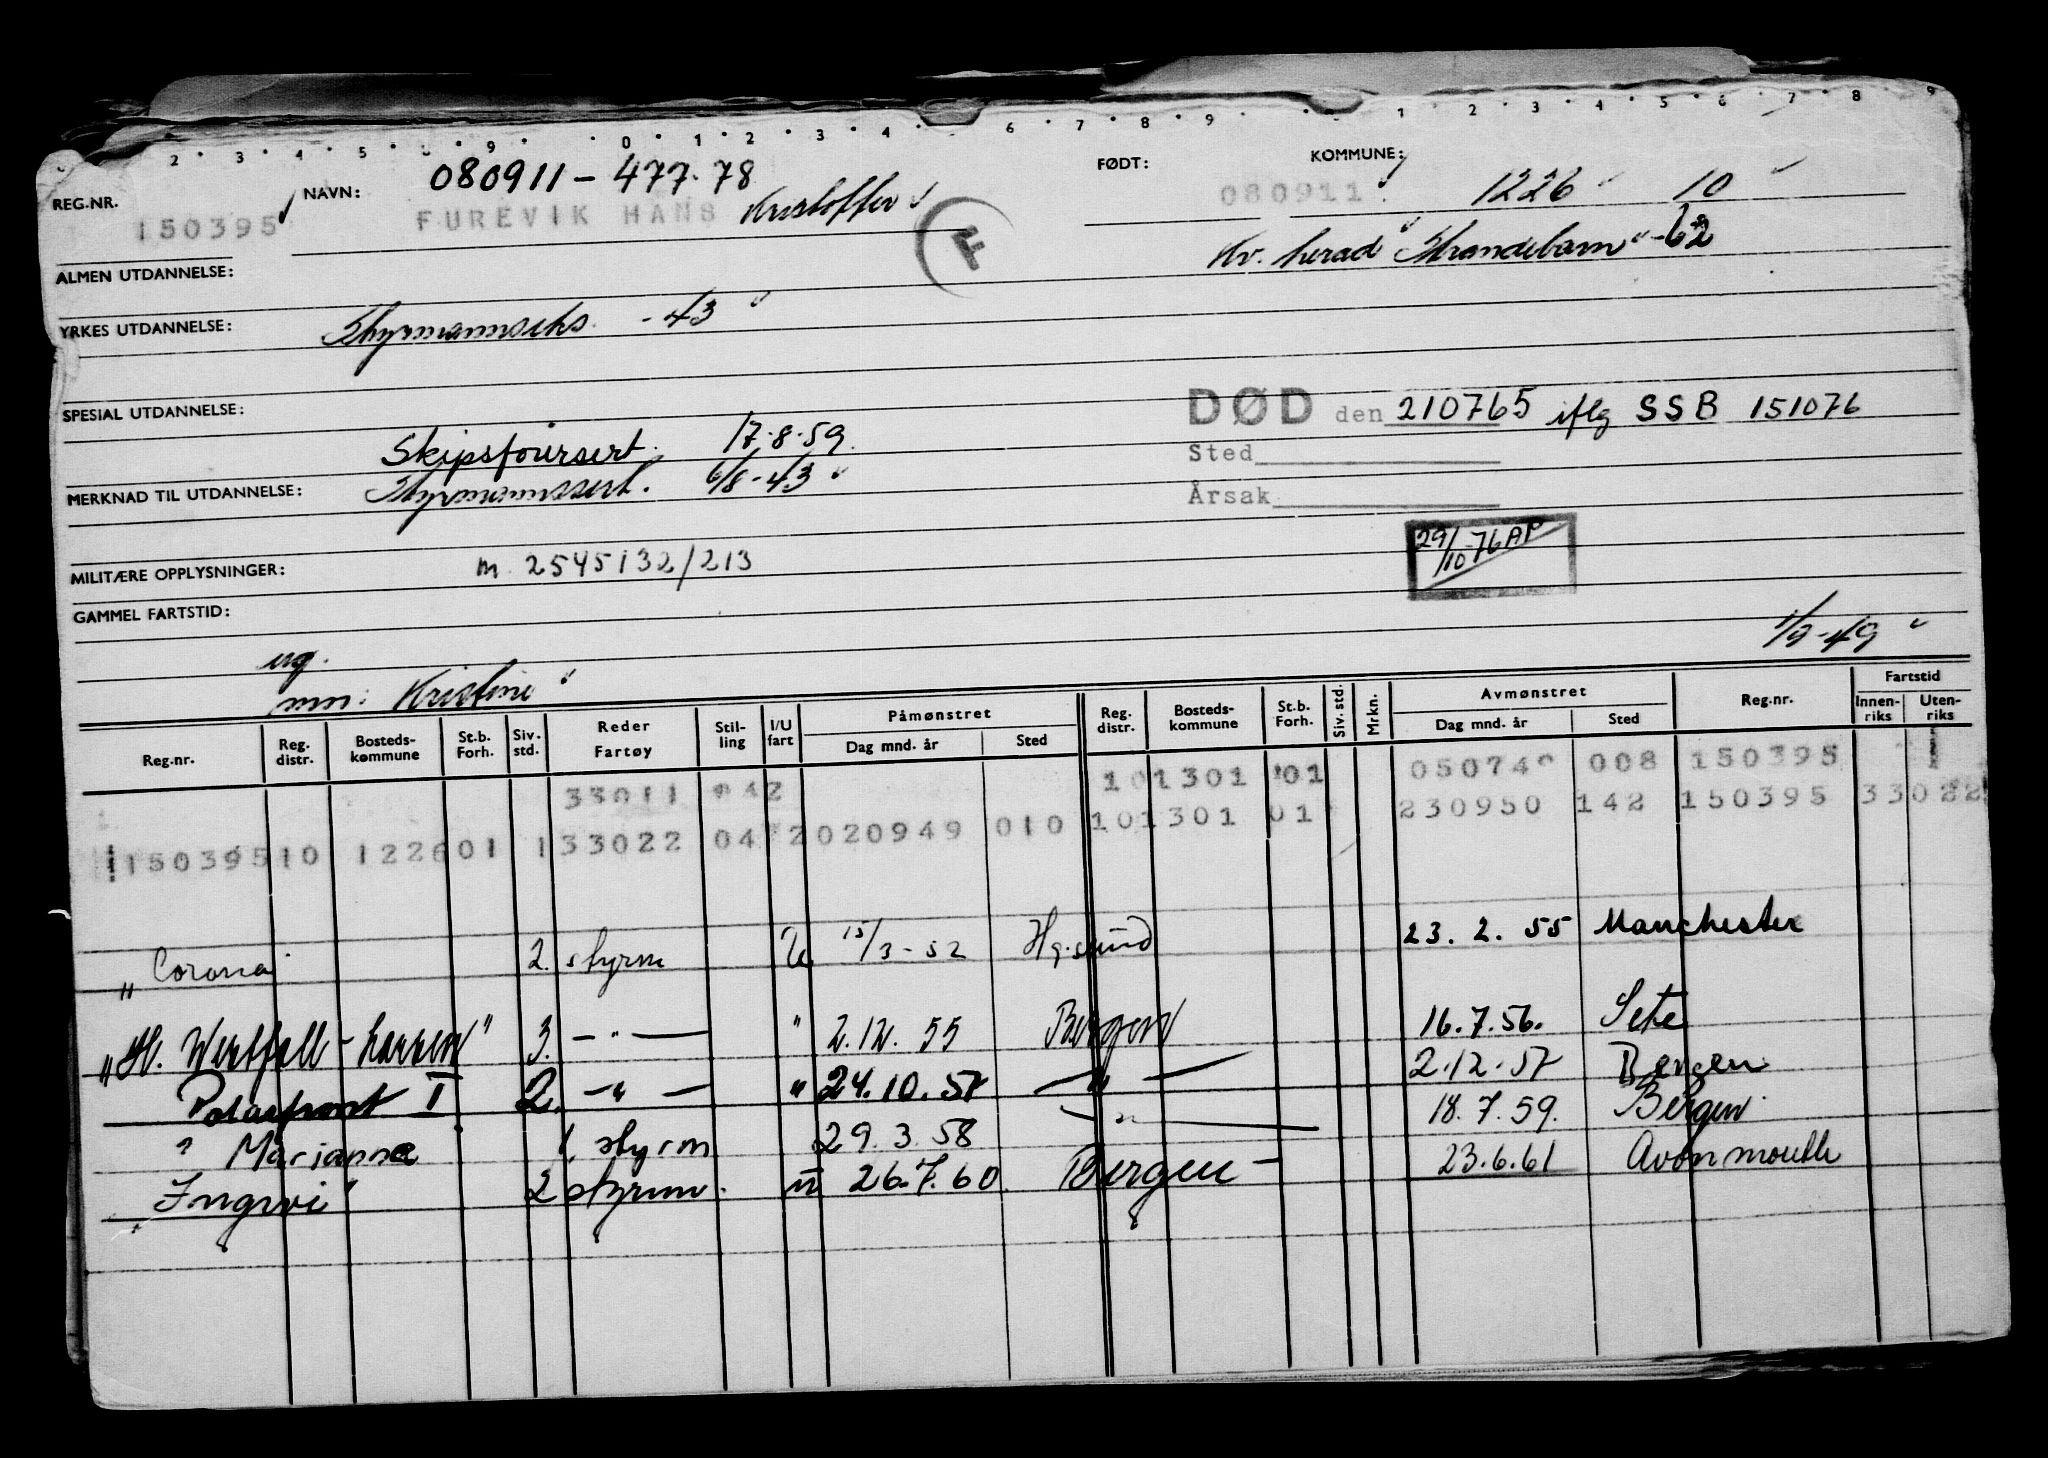 2 3 4 5 9 0 1 2 3 4 6 7 8 9 1 2 3 4 5 6 7 8 9
REG.NR. 150395
NAVN: 080911-477.78
FUREVIK HANS Kristoffer
F
FØDT: 080911
KOMMUNE: 1226 10
Kv. herad "Strandebarm" -62
ALMEN UTDANNELSE:
YRKES UTDANNELSE: Styrmannseks. -43
SPESIAL UTDANNELSE:
DØD den 210765 iflg SSB 151076
Sted
Årsak
Skipsførersert. 17.8.59.
MERKNAD TIL UTDANNELSE: Styrmannssert. 6/8-43
29/10-76 AP
MILITÆRE OPPLYSNINGER: m. 2545132/213
GAMMEL FARTSTID:
1/9-49
ug.
mm: Kristine
Reg.nr. Reg. distr. Bosteds-kommune St.b. Forh. Siv. std. Reder Fartøy Stil-ling I/U fart Påmønstret Dag mnd. år Sted Reg. distr. Bosteds-kommune St.b. Forh. Siv. std. Mrkn. Avmønstret Dag mnd. år Sted Reg.nr. Fartstid Innen-riks Uten-riks
33011 042 101301 01 050749 008 150395
15039510 122601 133022 04 2020949 010 101301 01 230950 142 150395 33022
"Corona 2. styrm U 15/3-52 Hg.sund 23.2.55 Manchester
"Hl. Westfall-Larsen" 3. -"- " 2.12.55 Bergen 16.7.56. Sete
Polarfront I 2. -"- " 24.10.57 -"- 2.12.57 Bergen
" Marianne 1. styrm 29.3.58 -"- 18.7.59. Bergen
"Ingwi" 2 styrm. u 26.7.60. Bergen 23.6.61 Avonmouth